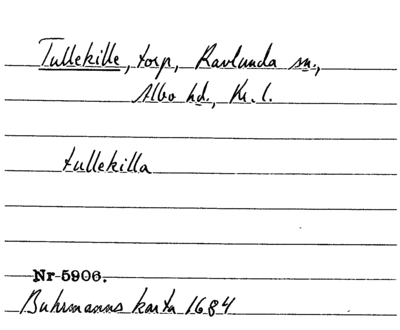 Tullekille, torp, Ravlunda sn.,
Albo hd., Kr. l.
tullekilla
Nr 5906.
Buhrmanns karta 1684